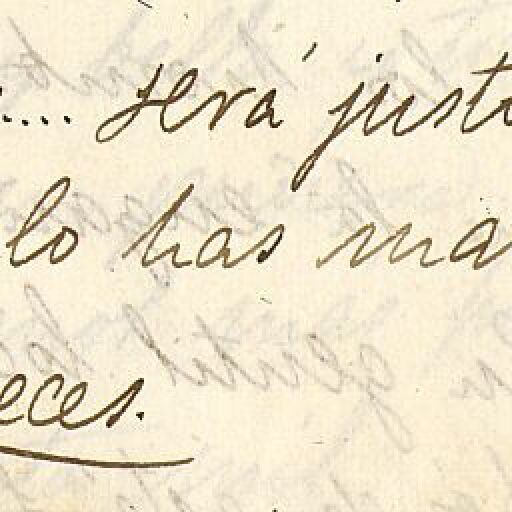 .... será just
lo has ma
eces.